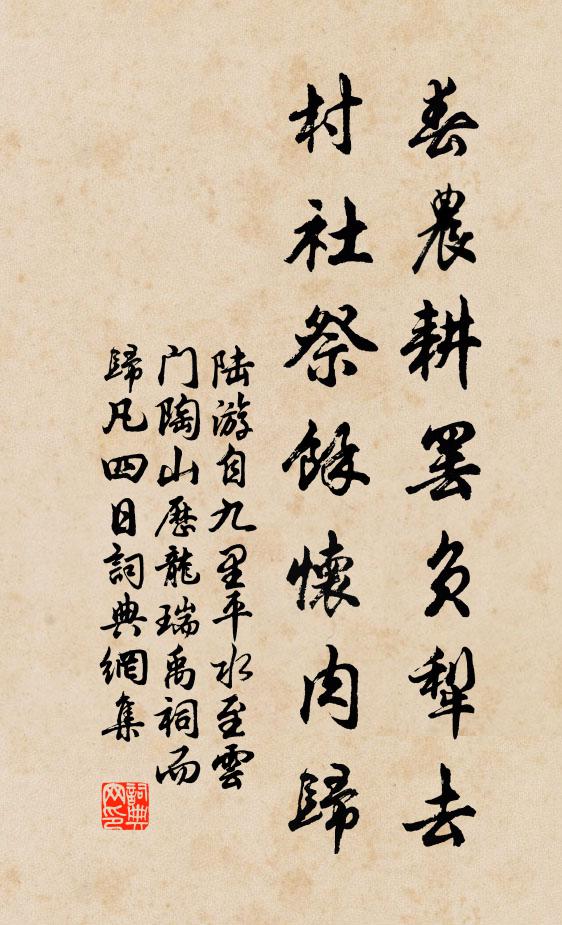 春農耕罷負犁去
村社祭餘懷肉歸
陆游自九里平水至雲
门陶山歷龍瑞禹祠而
歸凡四日詞典網集
詞典
网印